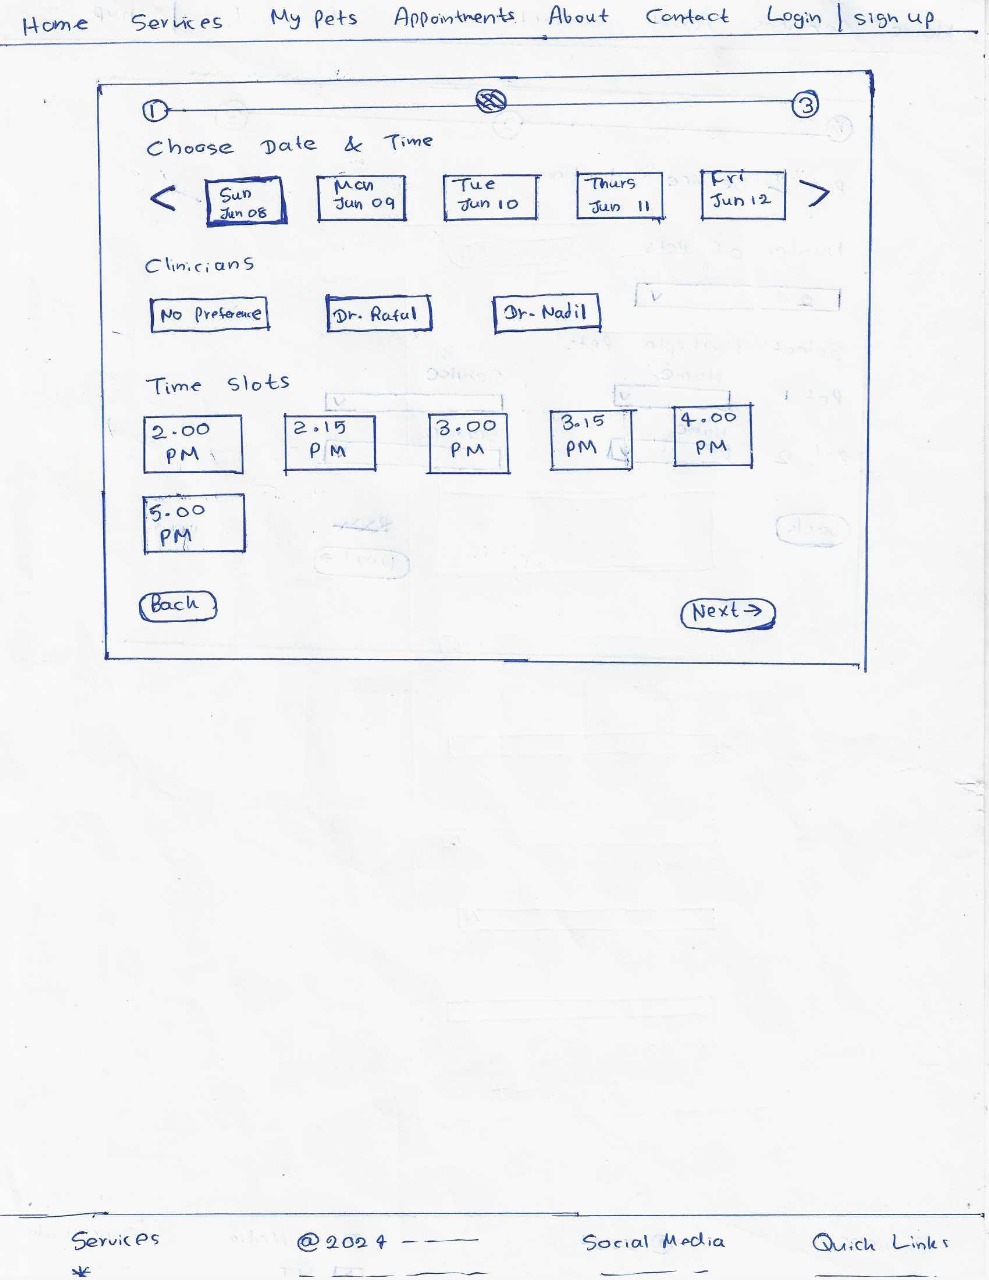 Home Services My Pets Appointments About Contact Login | sign up
1 3
Choose Date & Time
< Sun Mon Tue Thurs Fri >
Jun 08 Jun 09 Jun 10 Jun 11 Jun 12
Clinicians
No Preference Dr. Raful Dr. Nadil
Time Slots
2.00 2.15 3.00 3.15 4.00
PM PM PM PM PM
5.00
PM
Back Next →
Services @2024 Social Media Quick Links
*